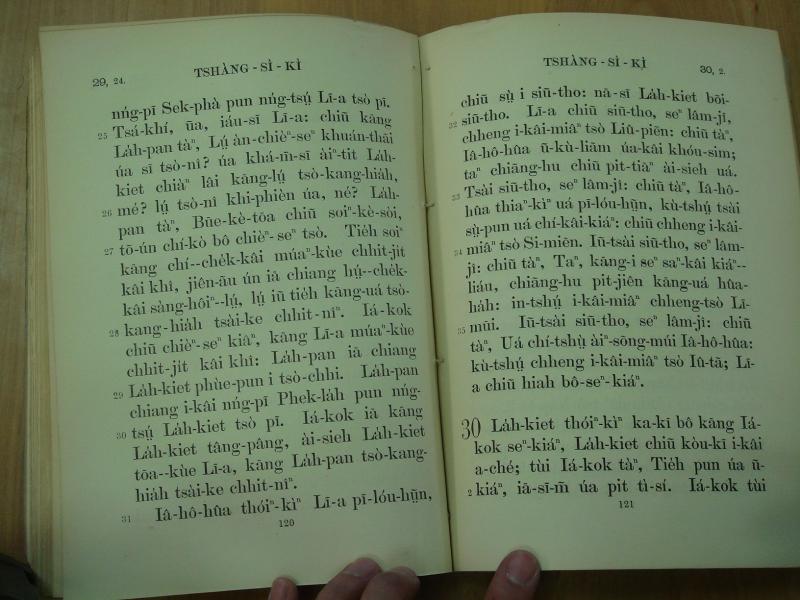 29, 24.
TSHÀNG - SÌ - KÌ
nńg-pī Sek-phà pun nńg-tsṳ́ Lī-a tsò pī.
25 Tsá-khí, ūa, iáu-sī Lī-a: chiū kāng
La̍h-pan tàⁿ, Lṳ́ àn-chièⁿ-seⁿ khuán-thāi
úa sī tsò-nî? úa khá-m̄-sī àiⁿ-tit La̍h-
kiet chiàⁿ lâi kāng-lṳ́ tsò-kang-hia̍h,
26 mé? lṳ́ tsò-nî khi-phièn úa, né? La̍h-
pan tàⁿ, Būe-kè-tōa chiū soiⁿ-kè-sòi,
27 tō-ún chí-kò bô chièⁿ-seⁿ tsò. Tie̍h soiⁿ
kāng chí--che̍k-kâi múaⁿ-kùe chhit-ji̍t
kâi khî, jiên-āu ún iā chiang hṳ́--che̍k-
kâi sàng-hôiⁿ--lṳ́, lṳ́ iū tie̍h kāng-uá tsò-
28 kang-hia̍h tsài-ke chhit-nîⁿ. Iá-kok
chiū chièⁿ-seⁿ kiâⁿ, kāng Lī-a múaⁿ-kùe
chhit-ji̍t kâi khî: La̍h-pan iā chiang
29 La̍h-kiet phùe-pun i tsò-chhi. La̍h-pan
chiang i-kâi nńg-pī Phek-la̍h pun nńg-
30 tsṳ́ La̍h-kiet tsò pī. Iá-kok iā kāng
La̍h-kiet tâng-pâng, ái-sieh La̍h-kiet
tōa--kùe Lī-a, kāng La̍h-pan tsò-kang-
hia̍h tsài-ke chhit-nîⁿ.
31 Iâ-hô-hûa thóiⁿ-kìⁿ Lī-a pī-lóu-hṳ̄n,
120
TSHÀNG - SÌ - KÌ
30, 2.
chiū sṳ̀ i siū-tho: nā-sī La̍h-kiet bōi-
32 siū-tho. Lī-a chiū siū-tho, seⁿ lâm-jî,
chheng i-kâi-miâⁿ tsò Liû-piēn: chiū tàⁿ,
Iâ-hô-hûa ū-kù-liām úa-kâi khóu-sim;
taⁿ chiāng-hu chiū pit-tiàⁿ ài-sieh uá.
33 Tsài siū-tho, seⁿ lâm-jî: chiū tàⁿ, Iâ-hô-
hûa thiaⁿ-kìⁿ uá pī-lóu-hṳ̄n, kù-tshṳ́ tsài
sṳ̀-pun uá chí-kâi-kiáⁿ: chiū chheng i-kâi-
34 miâⁿ tsò Si-miēn. Iū-tsài siū-tho, seⁿ lâm-
jî: chiū tàⁿ, Taⁿ, kāng-i se saⁿ-kâi kiáⁿ--
liáu, chiāng-hu pit-jiên kāng-uá hûa-
ha̍h: in-tshṳ́ i-kâi-miâⁿ chheng-tsò Lī-
35 mūi. Iū-tsài siū-tho, seⁿ lâm-jî: chiū
tàⁿ, Uá chí-tshṳ̀ àiⁿ-sōng-múi Iâ-hô-hûa:
kù-tshṳ́ chheng i-kâi-miâⁿ tsò Iû-tā; Lī-
a chiū hiah bô-seⁿ-kiáⁿ.
30 La̍h-kiet thóiⁿ-kìⁿ ka-kī bô kāng Iá-
kok seⁿ-kiáⁿ, La̍h-kiet chiū kòu-kī i-kâi
a-ché; tùi Iá-kok tàⁿ, Tie̍h pun úa ū-
kiáⁿ, iā-sī-m̄ úa pit tì-sí. Iá-kok tùi
2
121